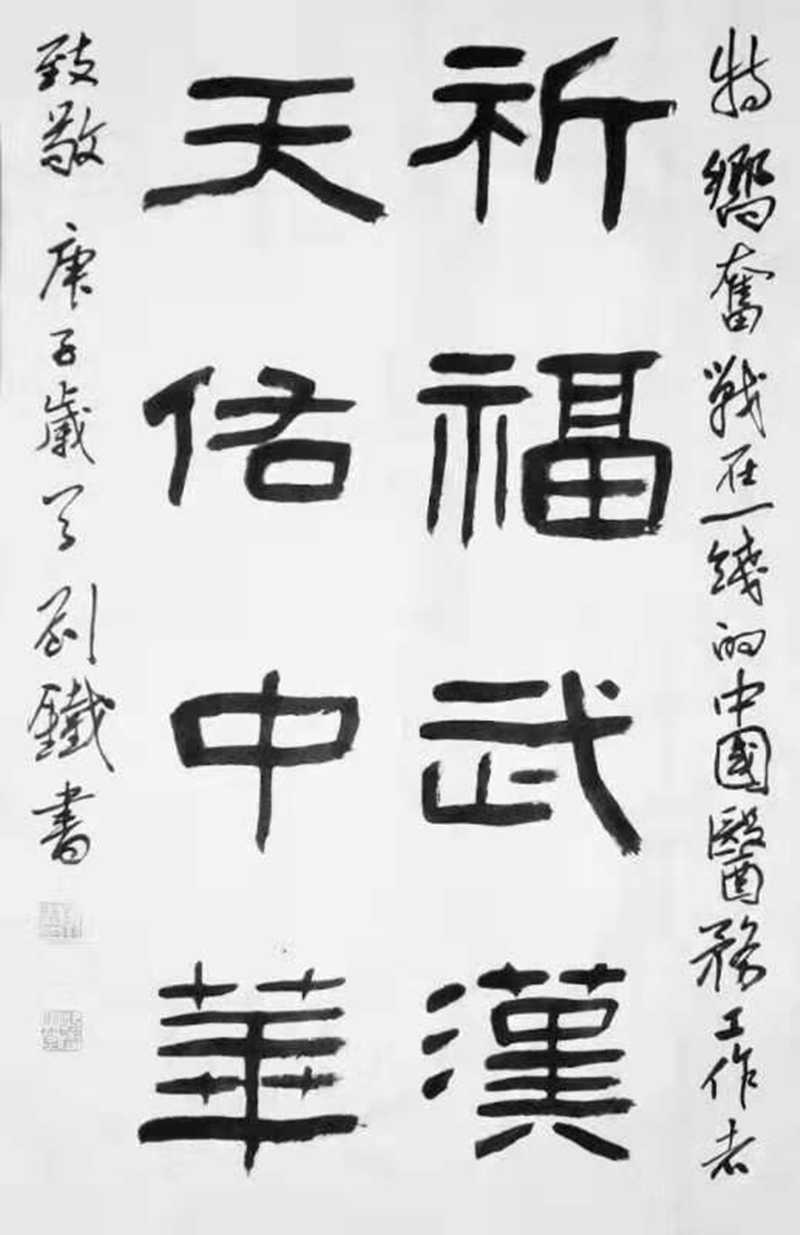 特嚮奮戰在一線的中國醫務工作者
祈福武漢
天佑中華
致敬 庚子歲 劉鐵書